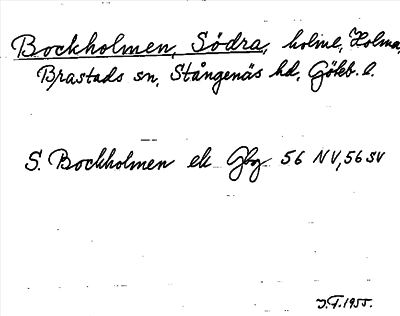 Bockholmen, Södra, holme, Holma,
Brastads sn, Stångenäs hd, Götb. l.
S. Bockholmen ek Gbg 56 NV, 56 SV
J.F. 1955.